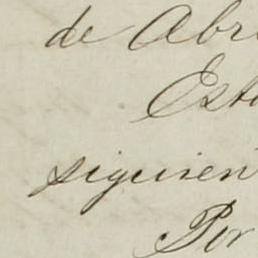 de Abr
Est
siguien
Por